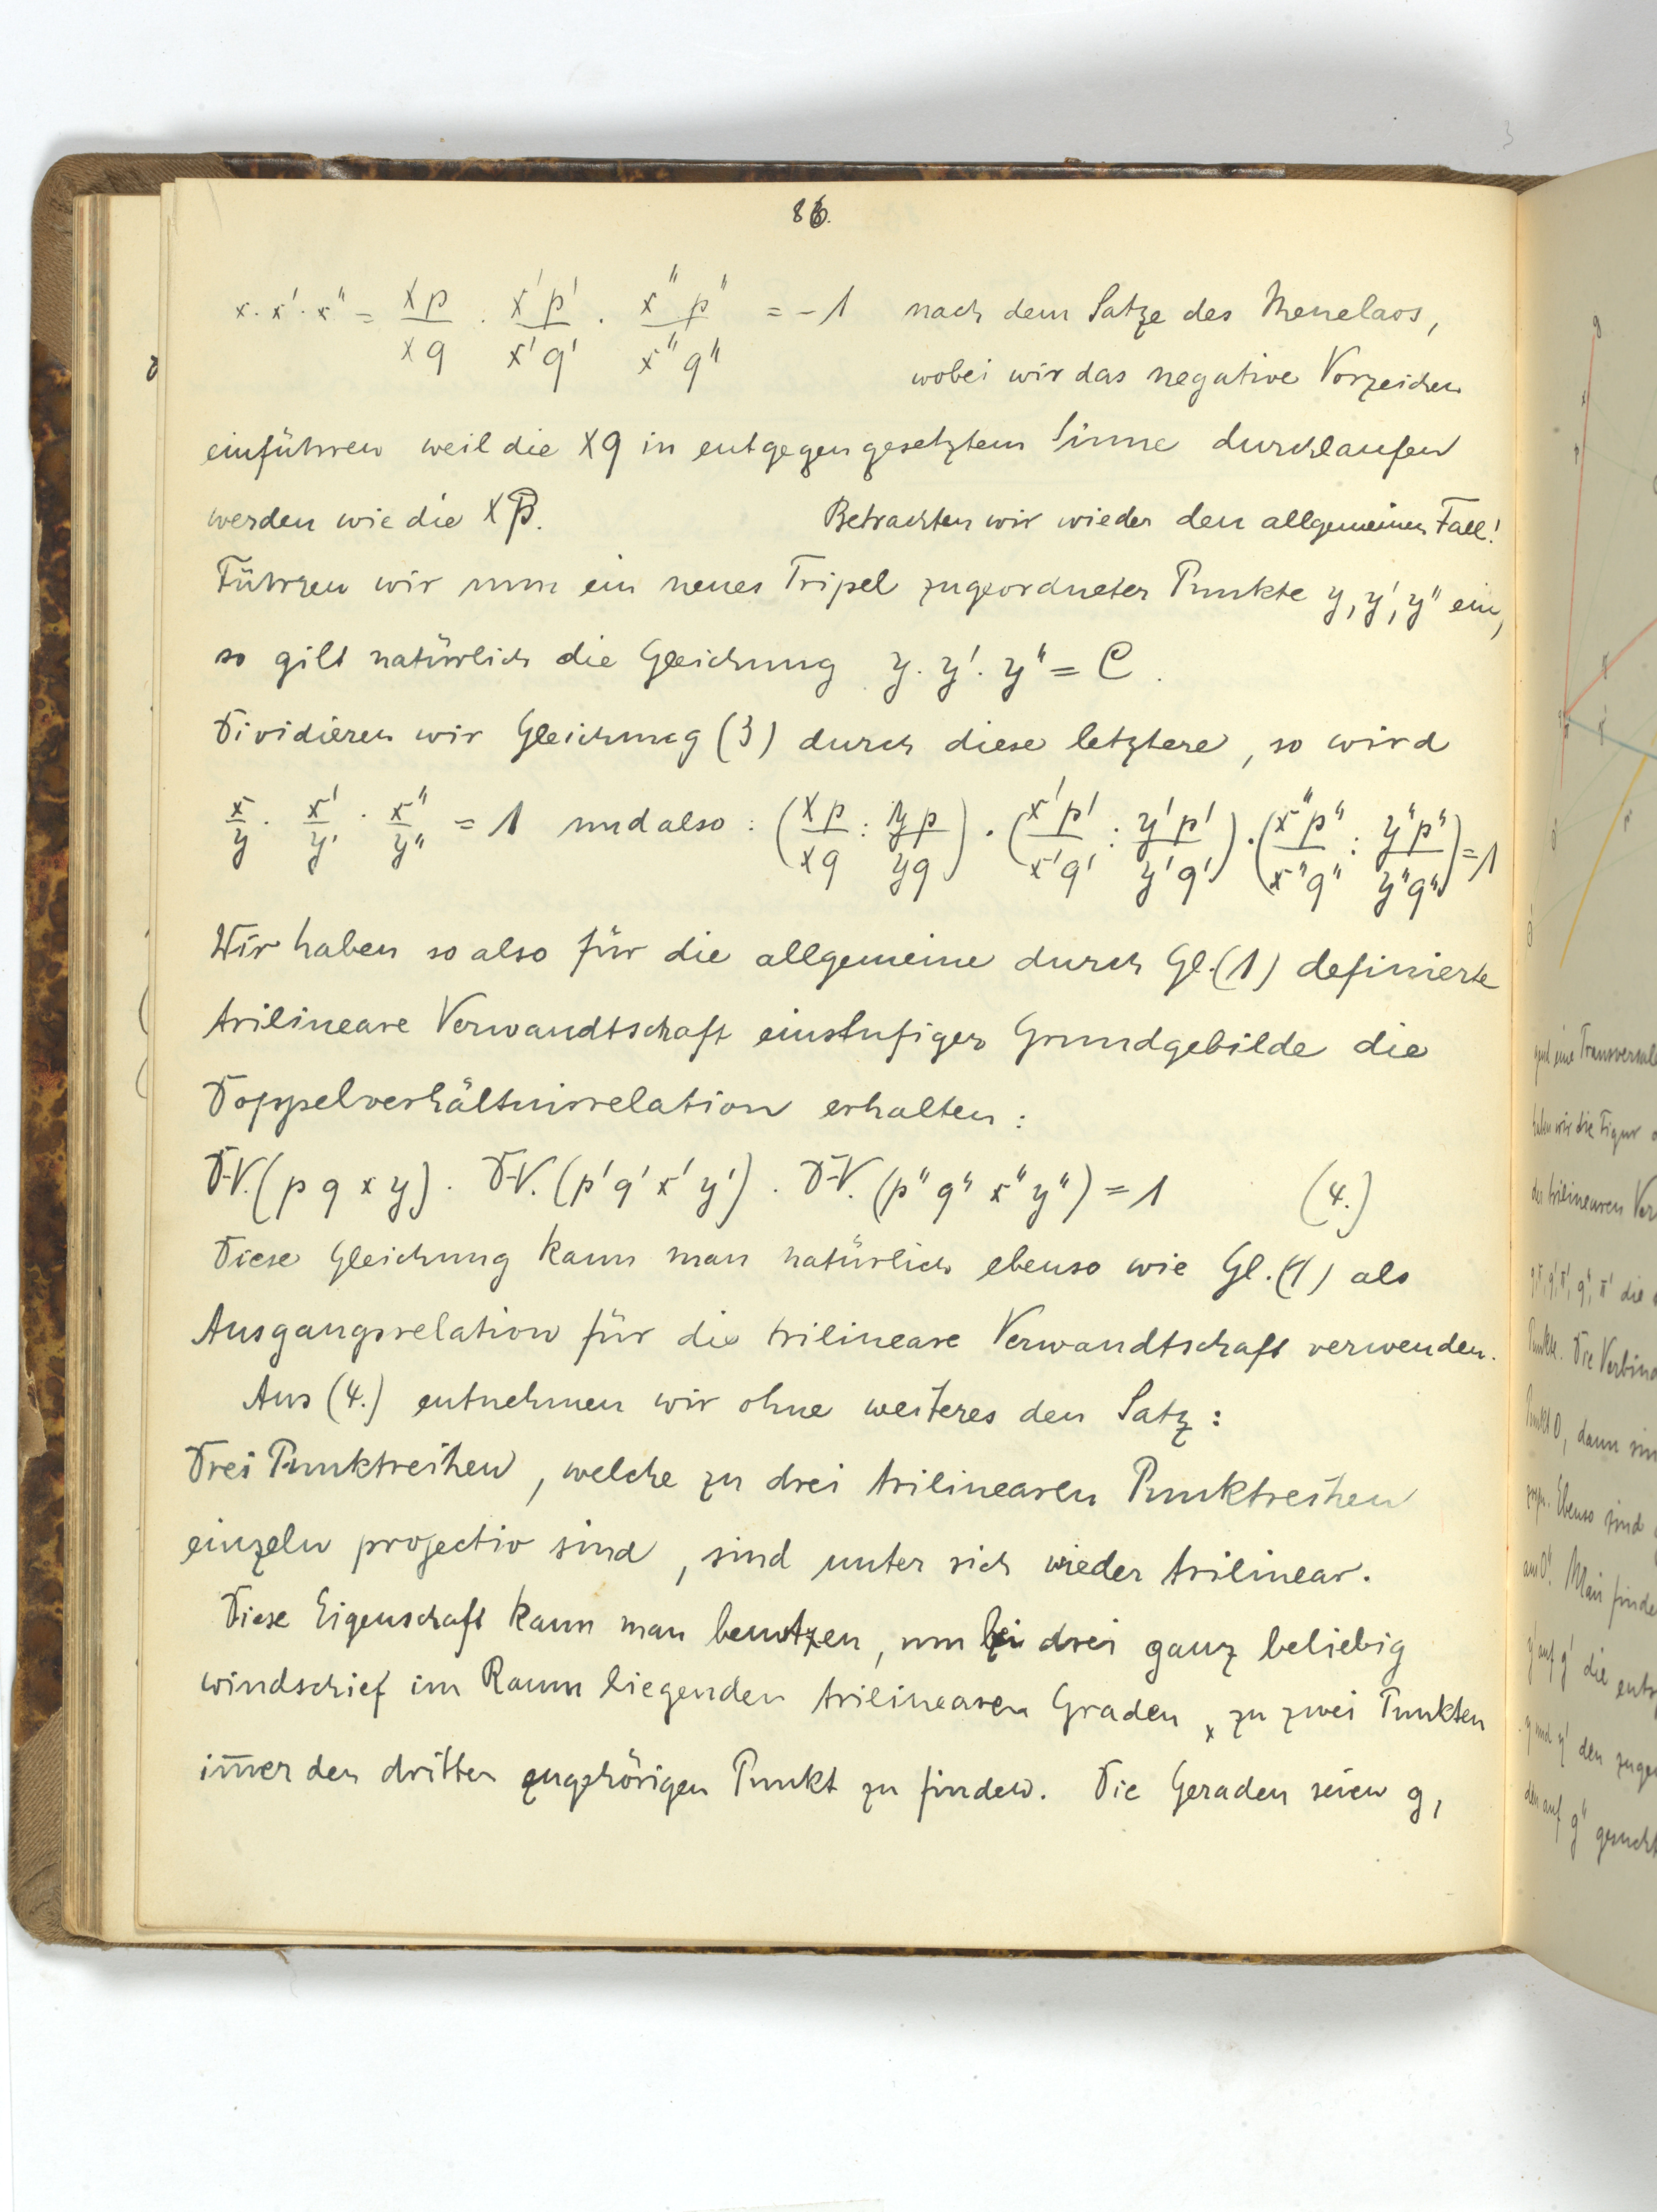 86.
x · x' · x" = xp/xq · x'p'/x'q' · x"p"/x"q" = -1 nach dem Satze des Menelaos,
wobei wir das negative Vorzeichen
einführen weil die xq in entgegengesetztem Sinne durchlaufen
werden wie die xp. Betrachten wir wieder den allgemeinen Fall!
Führen wir nun ein neues Tripel zugeordneter Punkte y, y', y" ein,
so gilt natürlich die Gleichung y · y' · y" = C.
Dividieren wir Gleichung (3) durch diese letztere, so wird
x/y · x'/y' · x"/y" = 1 und also : (xp/xq : yp/yq) · (x'p'/x'q' : y'p'/y'q') · (x"p"/x"q" : y"p"/y"q") = 1
Wir haben so also für die allgemeine durch Gl.(1) definierte
trilineare Verwandtschaft einstufiger Grundgebilde die
Doppelverhältnisrelation erhalten :
D.V.(p q x y) · D.V.(p' q' x' y') · D.V.(p" q" x" y") = 1 (4.)
Diese Gleichung kann man natürlich ebenso wie Gl.(1) als
Ausgangsrelation für die trilineare Verwandtschaft verwenden.
Aus (4.) entnehmen wir ohne weiteres den Satz :
Drei Punktreihen, welche zu drei trilinearen Punktreihen
einzeln projectiv sind, sind unter sich wieder trilinear.
Diese Eigenschaft kann man benutzen, um bei drei ganz beliebig
windschief im Raum liegenden trilinearen Graden, zu zwei Punkten
im̄er den dritten zugehörigen Punkt zu finden. Die Geraden seien g,
eine Transversale
haben wir die Figur
der trilinearen Ver
die
Punkte. Die Verbind
Punkt O, dann sin
Ebenso sind
aus O". Man finde
y' auf g' die
y und y' den zuge
den auf g" gesucht